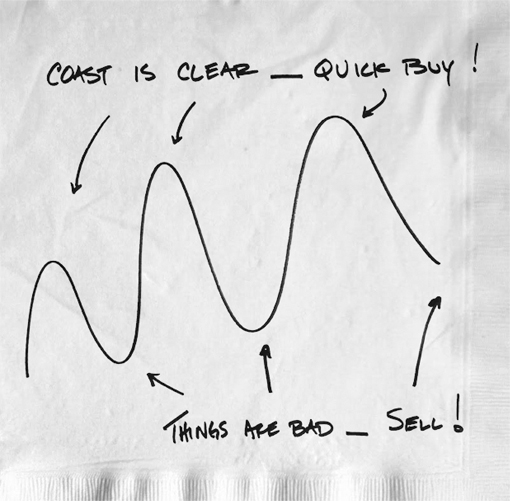 COAST IS CLEAR — QUICK BUY!
THINGS ARE BAD — SELL!